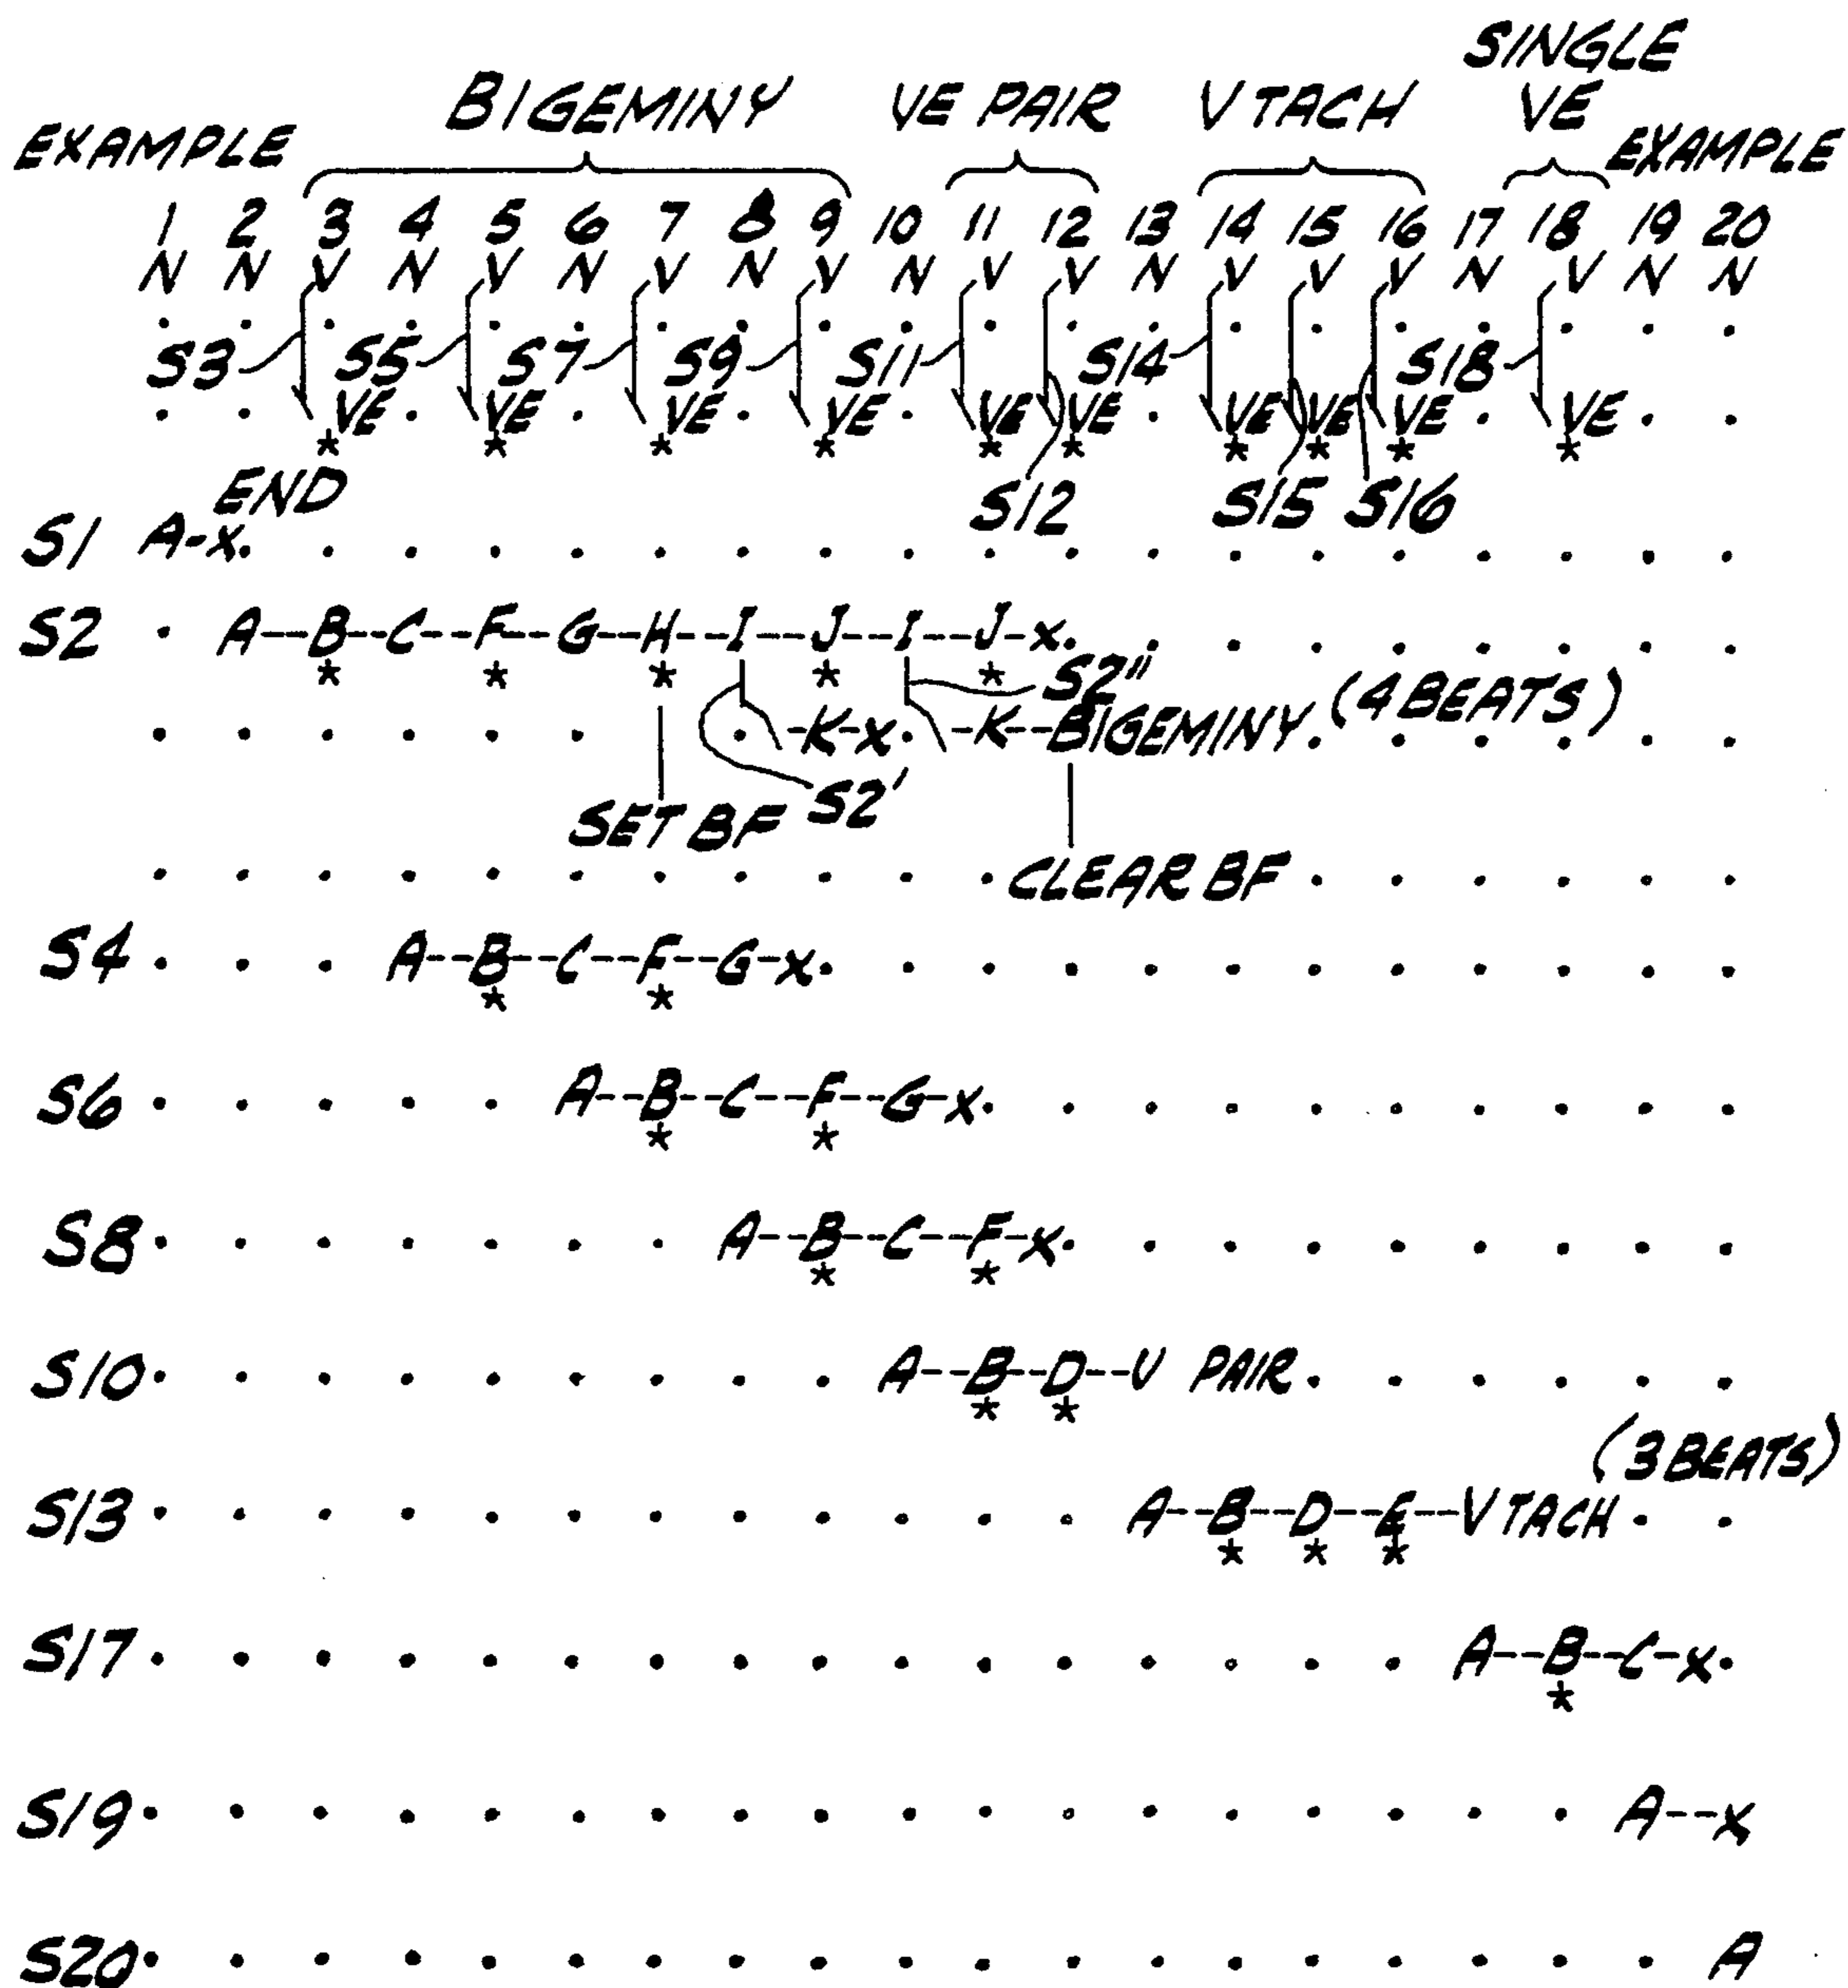 SINGLE
BIGEMINY VE PAIR V TACH VE
EXAMPLE EXAMPLE
1 2 3 4 5 6 7 8 9 10 11 12 13 14 15 16 17 18 19 20
N N V N V N V N V N V V N V V V N V N N
. . . . . . . . . . . . . . . . . . . .
S3 S5 S7 S9 S11 S14 S18
. . VE . VE . VE . VE . VE VE . VE VE VE . VE . .
* * * * * * * * * *
END S12 S15 S16
S1 A-X. . . . . . . . . . . . . . . . . . .
S2 . A--B--C--F--G--H--I--J--I--J-X. . . . . . . . .
* * * * * S2"
. . . . . . . -K-X. -K--BIGEMINY. (4 BEATS) . . . . .
SET BF S2'
. . . . . . . . . . . CLEAR BF . . . . . .
S4 . . . A--B--C--F--G-X. . . . . . . . . . . .
* *
S6 . . . . . A--B--C--F--G-X. . . . . . . . . .
* *
S8 . . . . . . . A--B--C--F-X. . . . . . . . .
* *
S10 . . . . . . . . . A--B--D--V PAIR . . . . . .
* *
(3 BEATS)
S13 . . . . . . . . . . . . A--B--D--E--V TACH . .
* * *
S17 . . . . . . . . . . . . . . . . A--B--C-X.
*
S19 . . . . . . . . . . . . . . . . . . A--X
S20 . . . . . . . . . . . . . . . . . . . A